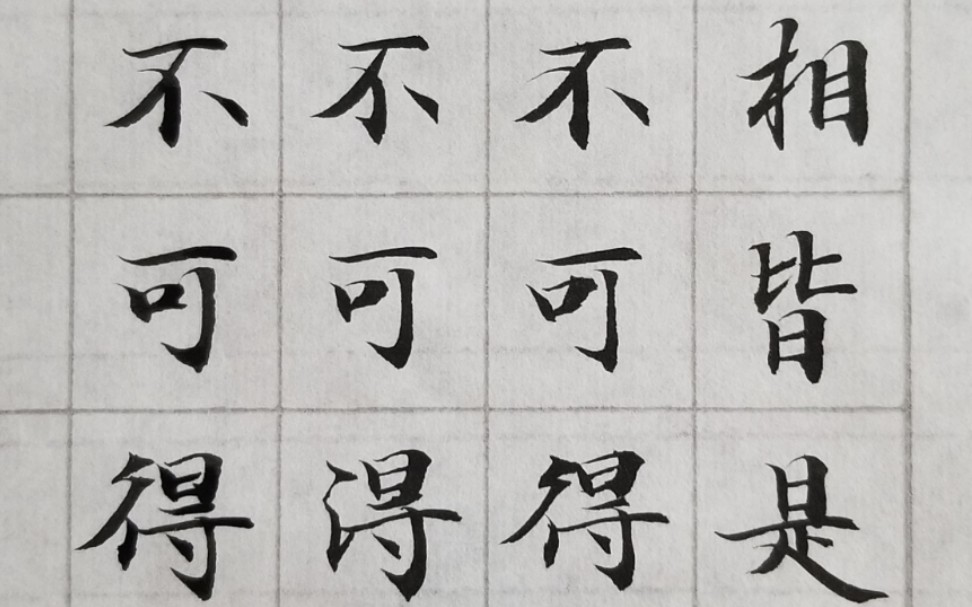 相皆是
不可得
不可得
不可得